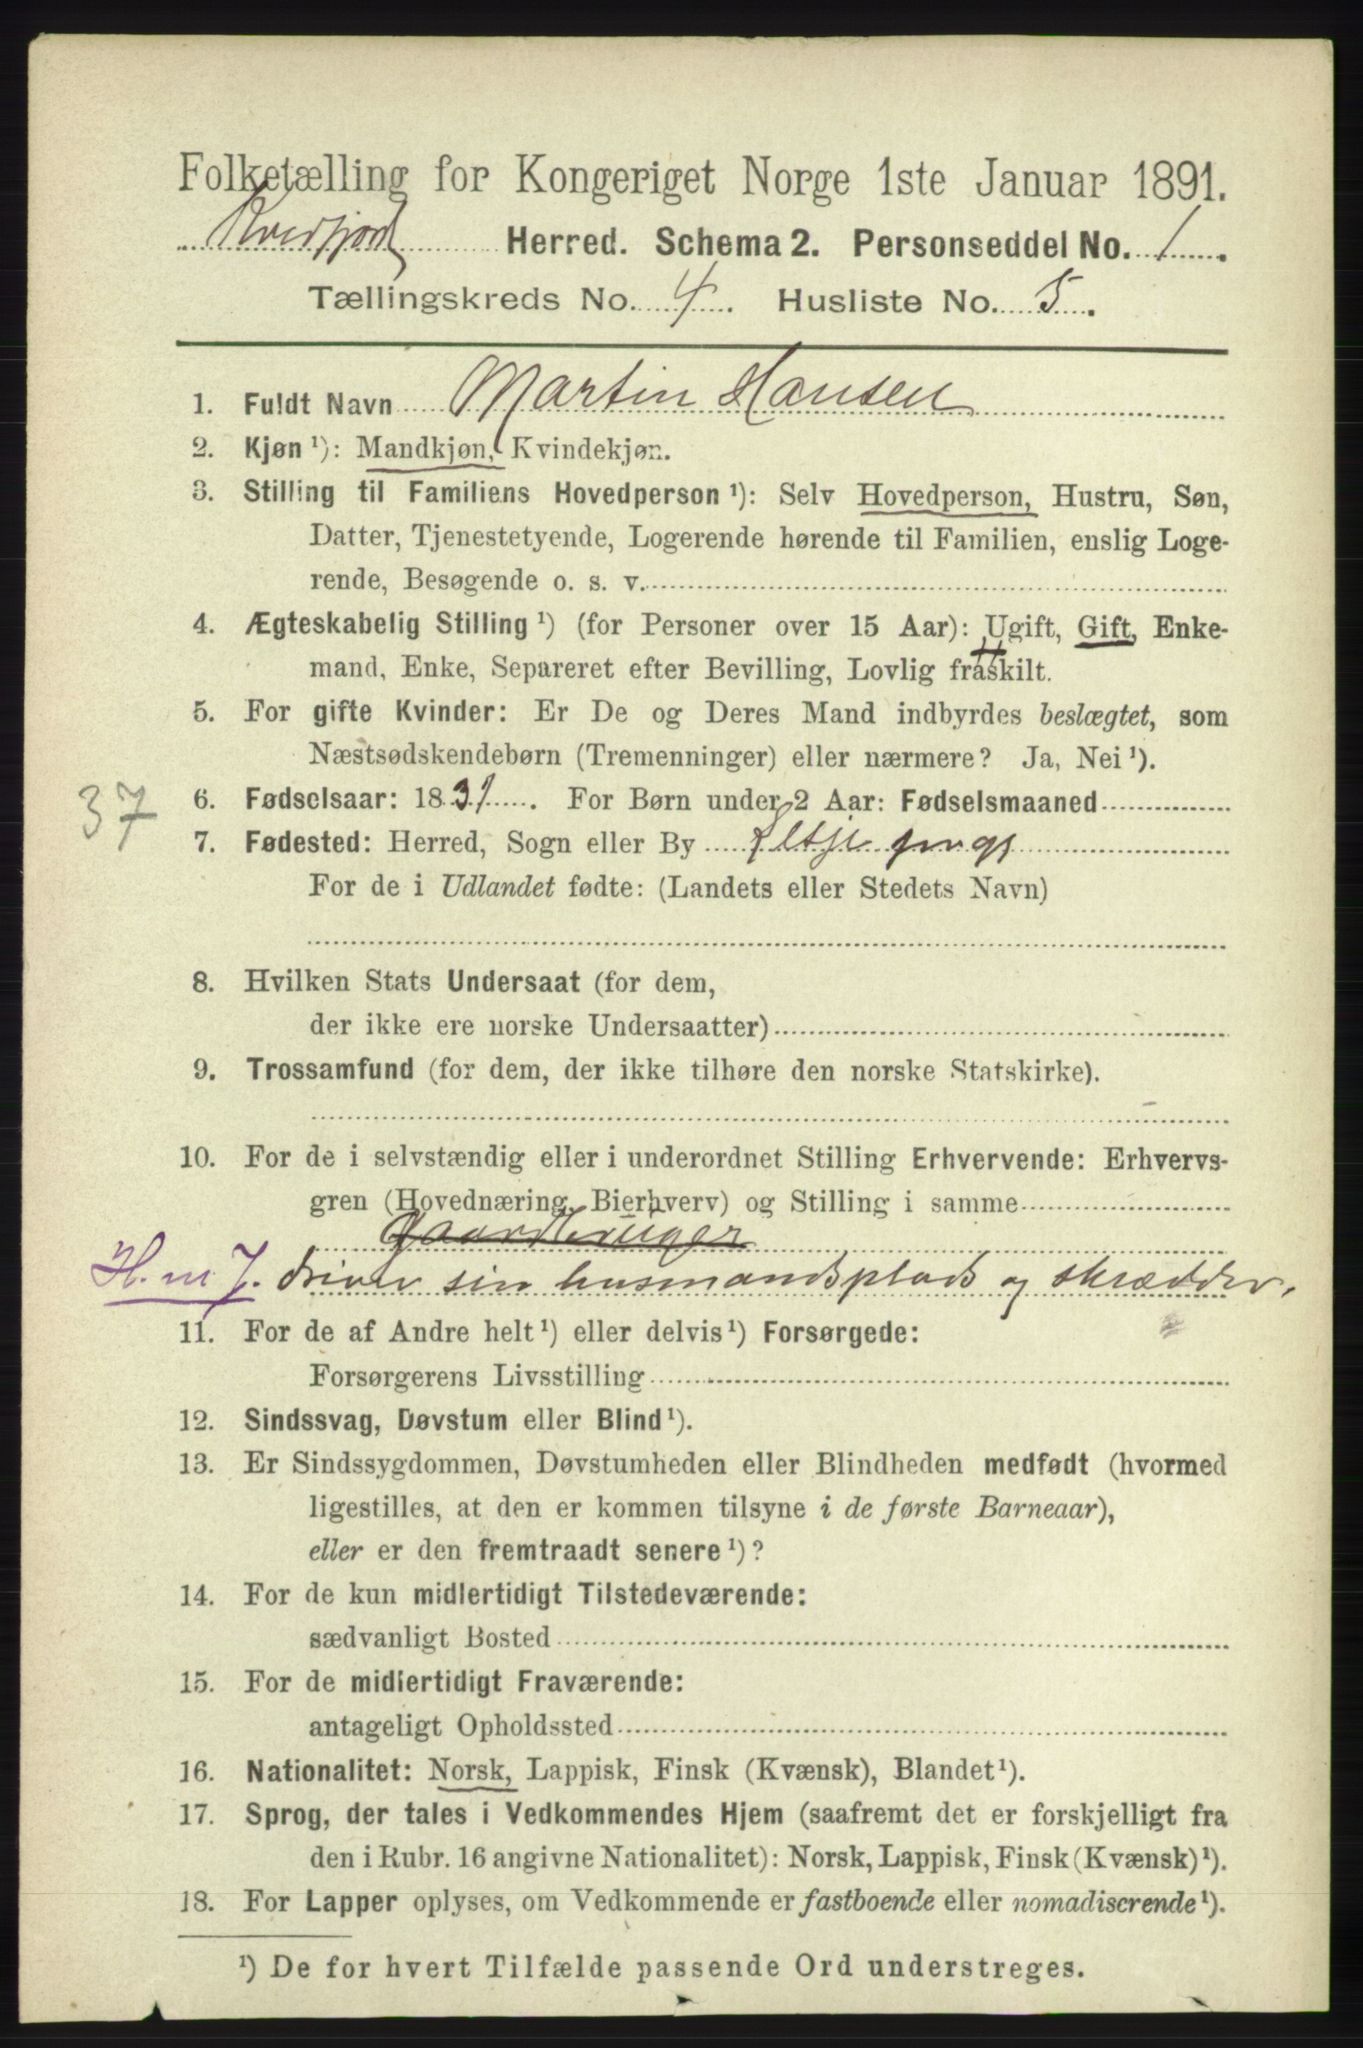 Folketælling for Kongeriget Norge 1ste Januar 1891.
Kvedfjord Herred. Schema 2. Personseddel No. 1.
Tællingskreds No. 4. Husliste No. 5.
1. Fuldt Navn Martin Hansen
2. Kjøn ¹): Mandkjøn, Kvindekjøn.
3. Stilling til Familiens Hovedperson ¹): Selv Hovedperson, Hustru, Søn,
Datter, Tjenestetyende, Logerende hørende til Familien, enslig Loge-
rende, Besøgende o. s. v.
4. Ægteskabelig Stilling ¹) (for Personer over 15 Aar): Ugift, Gift, Enke-
mand, Enke, Separeret efter Bevilling, Lovlig fraskilt.
5. For gifte Kvinder: Er De og Deres Mand indbyrdes beslægtet, som
Næstsødskendebørn (Tremenninger) eller nærmere? Ja, Nei ¹).
37
6. Fødselsaar: 1831. For Børn under 2 Aar: Fødselsmaaned
7. Fødested: Herred, Sogn eller By
For de i Udlandet fødte: (Landets eller Stedets Navn)
8. Hvilken Stats Undersaat (for dem,
der ikke ere norske Undersaatter)
9. Trossamfund (for dem, der ikke tilhøre den norske Statskirke).
10. For de i selvstændig eller i underordnet Stilling Erhvervende: Erhvervs-
gren (Hovednæring, Bierhverv) og Stilling i samme
Gaardbruger
H. m J. driver sin husmandsplads og skrædder.
11. For de af Andre helt ¹) eller delvis ¹) Forsørgede:
Forsørgerens Livsstilling
12. Sindssvag, Døvstum eller Blind ¹).
13. Er Sindssygdommen, Døvstumheden eller Blindheden medfødt (hvormed
ligestilles, at den er kommen tilsyne i de første Barneaar),
eller er den fremtraadt senere ¹)?
14. For de kun midlertidigt Tilstedeværende:
sædvanligt Bosted
15. For de midlertidigt Fraværende:
antageligt Opholdssted
16. Nationalitet: Norsk, Lappisk, Finsk (Kvænsk), Blandet ¹).
17. Sprog, der tales i Vedkommendes Hjem (saafremt det er forskjelligt fra
den i Rubr. 16 angivne Nationalitet): Norsk, Lappisk, Finsk (Kvænsk) ¹).
18. For Lapper oplyses, om Vedkommende er fastboende eller nomadiserende ¹).
¹) De for hvert Tilfælde passende Ord understreges.